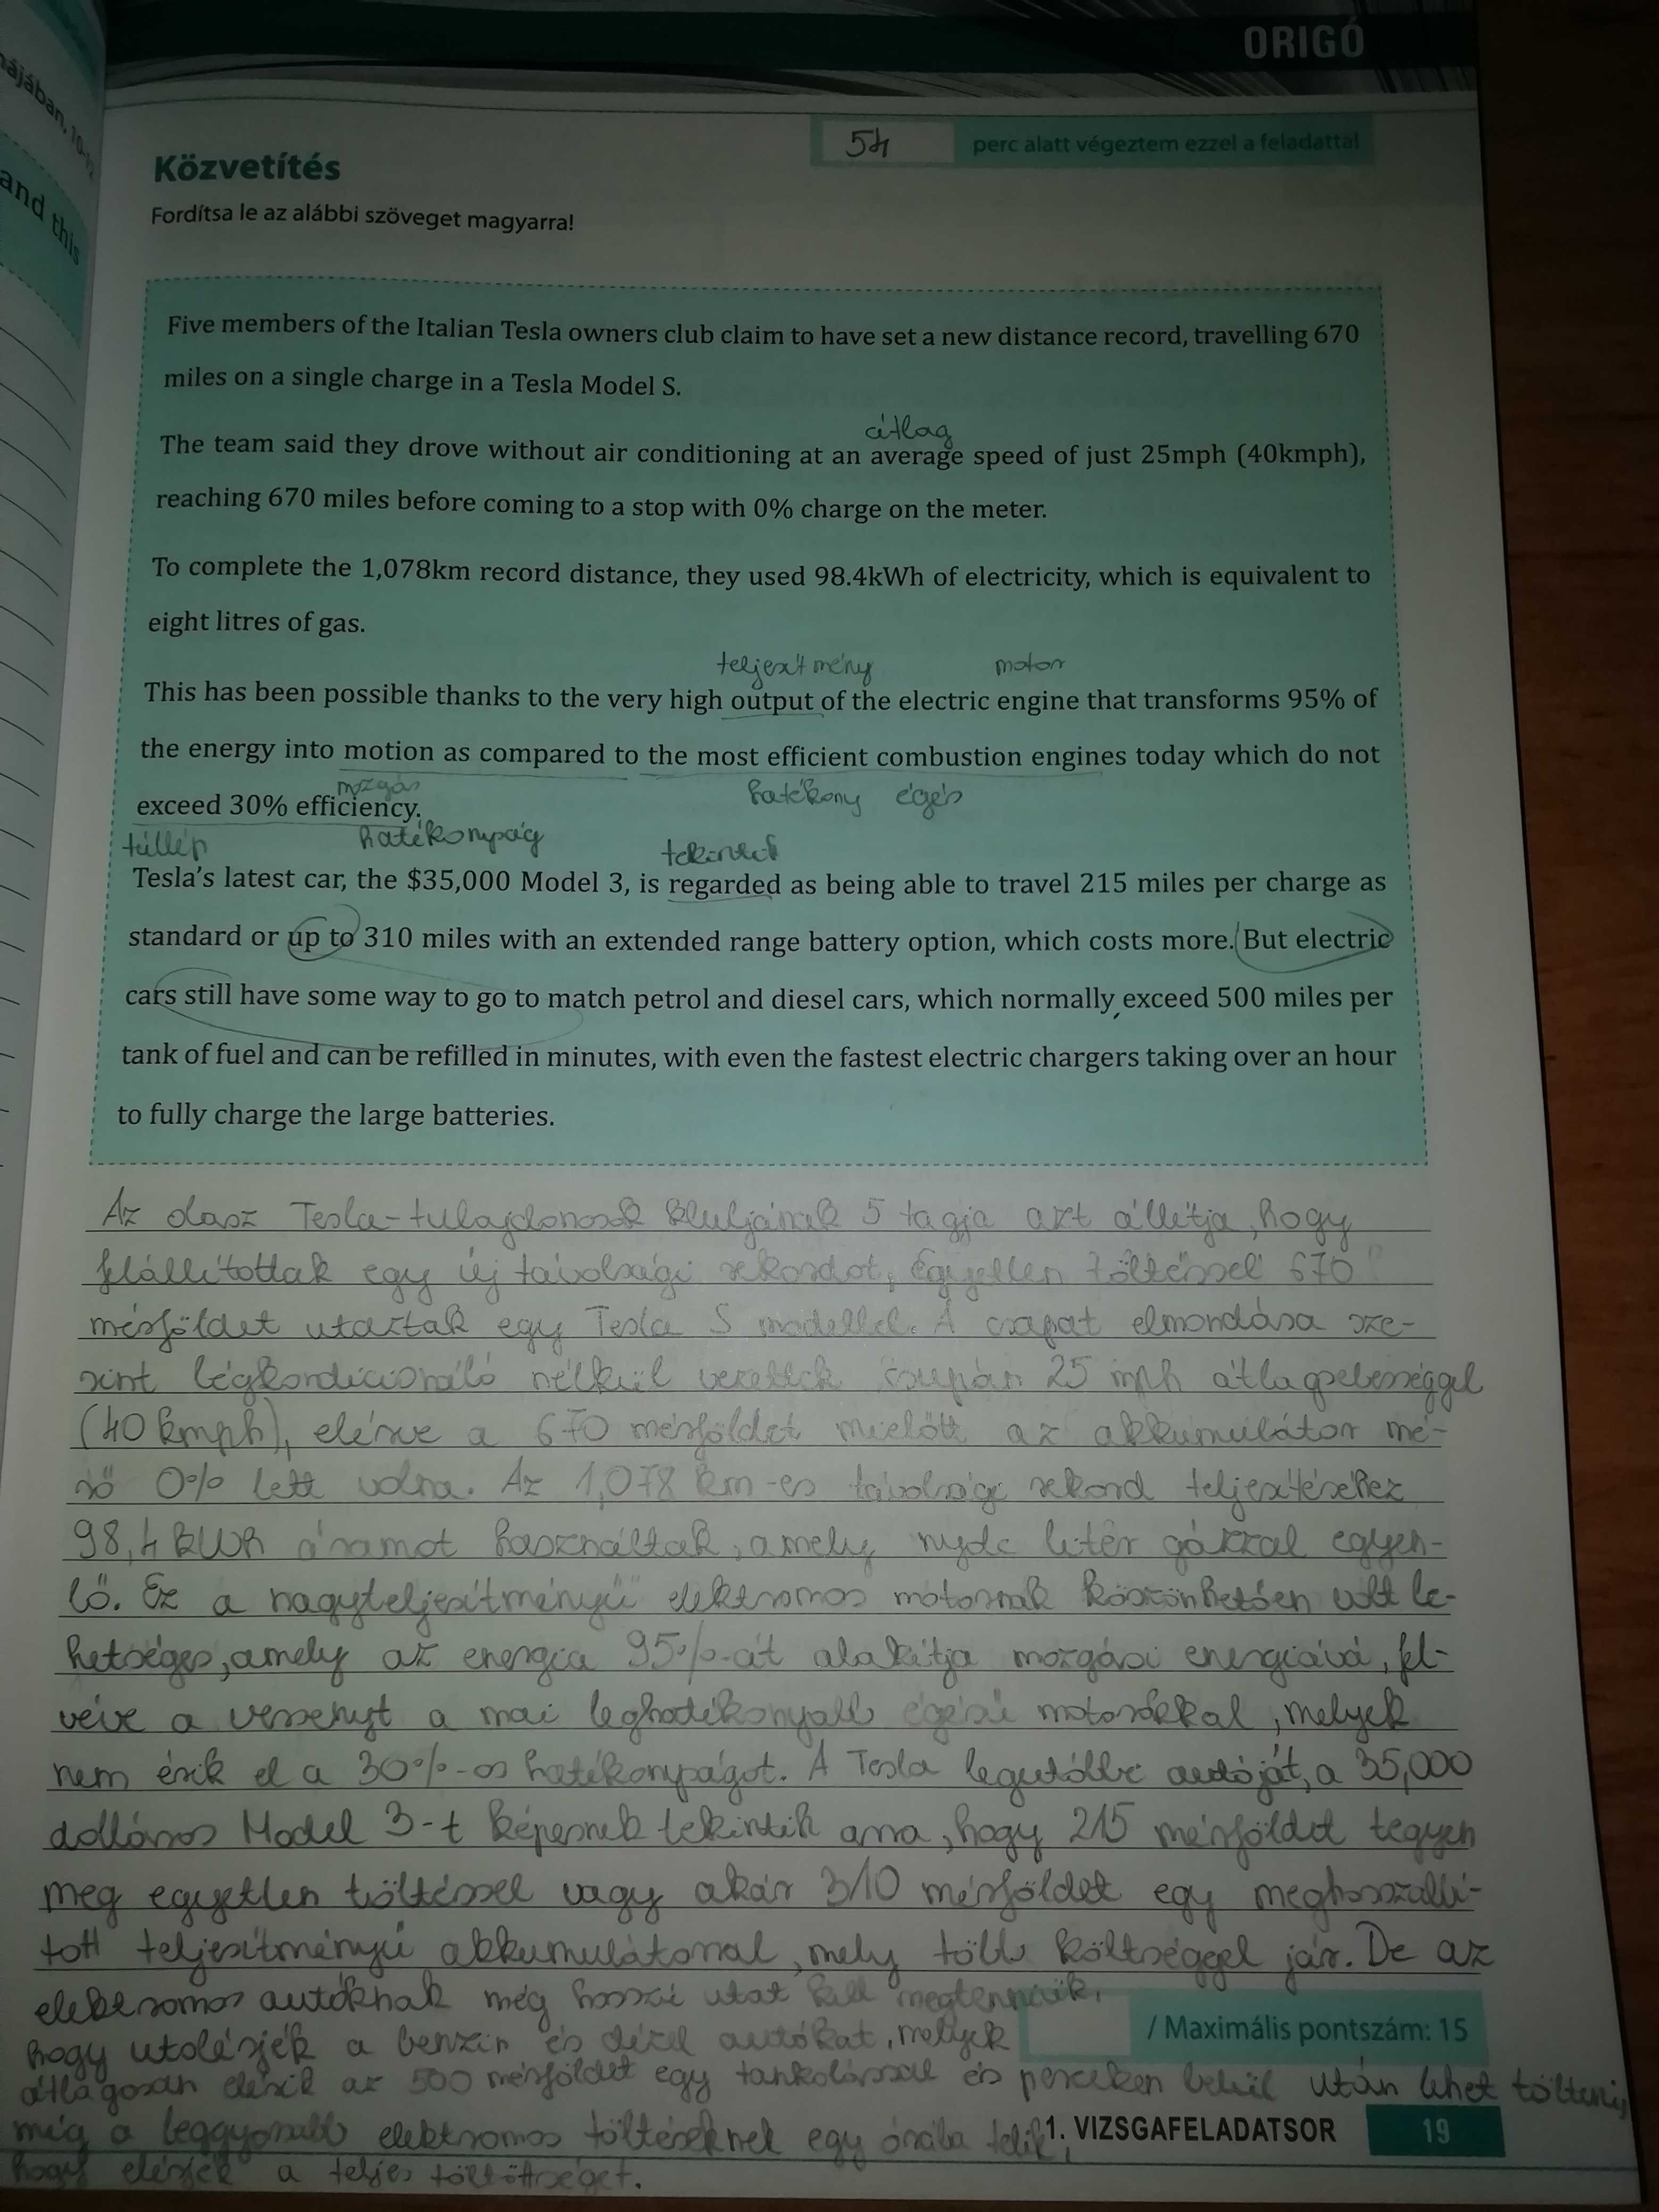 ORIGÓ
májában, 10-12
and this
54 perc alatt végeztem ezzel a feladattal
Közvetítés
Fordítsa le az alábbi szöveget magyarra!
Five members of the Italian Tesla owners club claim to have set a new distance record, travelling 670
miles on a single charge in a Tesla Model S.
átlag
The team said they drove without air conditioning at an average speed of just 25mph (40kmph),
reaching 670 miles before coming to a stop with 0% charge on the meter.
To complete the 1,078km record distance, they used 98.4kWh of electricity, which is equivalent to
eight litres of gas.
teljesítmény motor
This has been possible thanks to the very high output of the electric engine that transforms 95% of
the energy into motion as compared to the most efficient combustion engines today which do not
mozgás hatékony égés
exceed 30% efficiency.
túllép hatékonyság tekintik
Tesla's latest car, the $35,000 Model 3, is regarded as being able to travel 215 miles per charge as
standard or up to 310 miles with an extended range battery option, which costs more. But electric
cars still have some way to go to match petrol and diesel cars, which normally exceed 500 miles per
tank of fuel and can be refilled in minutes, with even the fastest electric chargers taking over an hour
to fully charge the large batteries.
Az olasz Tesla-tulajdonosok klubjának 5 tagja azt állítja, hogy
felállítottak egy új távolsági rekordot, egyetlen töltéssel 670
mérföldet utaztak egy Tesla S modellel. A csapat elmondása sze-
rint légkondicionáló nélkül vezettek csupán 25 mph átlagsebességgel
(40 kmph), elérve a 670 mérföldet mielőtt az akkumulátor mé-
rő 0% lett volna. Az 1,078 km-es távolsági rekord teljesítéséhez
98,4 kWh áramot használtak, amely nyolc liter gázzal egyen-
lő. Ez a nagyteljesítményű elektromos motornak köszönhetően volt le-
hetséges, amely az energia 95%-át alakítja mozgási energiává, fel-
véve a versenyt a mai leghatékonyabb égésű motorokkal, melyek
nem érik el a 30%-os hatékonyságot. A Tesla legutóbbi autóját, a 35,000
dolláros Model 3-t képesnek tekintik arra, hogy 215 mérföldet tegyen
meg egyetlen töltéssel vagy akár 310 mérföldet egy meghosszabbí-
tott teljesítményű akkumulátorral, mely több költséggel jár. De az
elektromos autóknak még hosszú utat kell megtenniük,
hogy utolérjék a benzin és dízel autókat, melyek
/ Maximális pontszám: 15
átlagosan elérik az 500 mérföldet egy tankolással és perceken belül után lehet tölteni,
míg a leggyorsabb elektromos töltéseknek egy órába telik,
1. VIZSGAFELADATSOR 19
hogy elérjék a teljes töltöttséget.